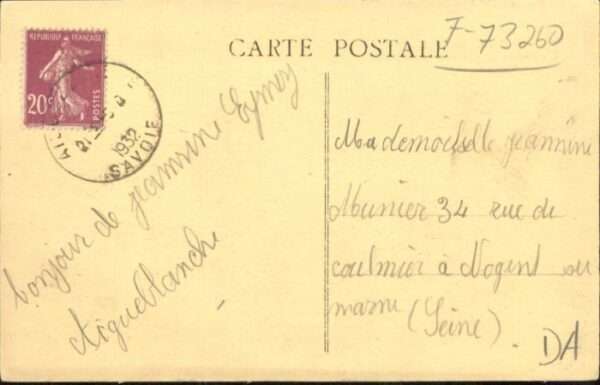 REPUBLIQUE FRANÇAISE
20c
POSTES
1932
SAVOIE
CARTE POSTALE
F-73260
bonjour de jeannine Eymoz
Aigueblanche
Mademoiselle jeannine
Meunier 34 rue de
coulmier à Nogent sur
marne
(Seine)
DA